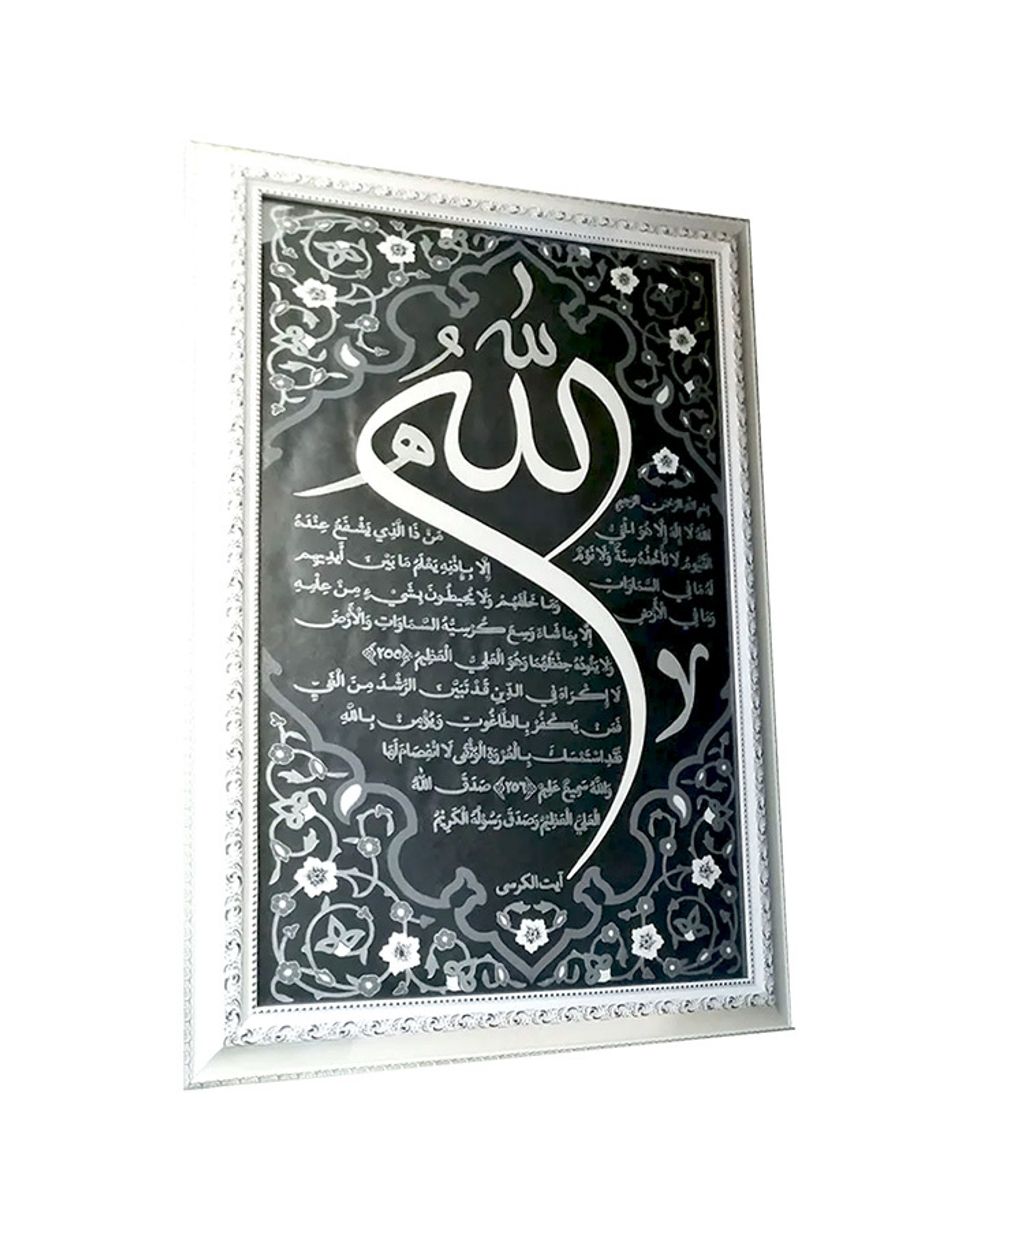 اللهُ
لا
بِسْمِ اللهِ الرَّحْمنِ الرَّحِيمِ
اللهُ لَا إِلَهَ إِلَّا هُوَ الْحَيُّ
الْقَيُّومُ لَا تَأْخُذُهُ سِنَةٌ وَلَا نَوْمٌ
لَهُ مَا فِي السَّمَاوَاتِ
وَمَا فِي الْأَرْضِ
مَنْ ذَا الَّذِي يَشْفَعُ عِنْدَهُ
إِلَّا بِإِذْنِهِ يَعْلَمُ مَا بَيْنَ أَيْدِيهِمْ
وَمَا خَلْفَهُمْ وَلَا يُحِيطُونَ بِشَيْءٍ مِنْ عِلْمِهِ
إِلَّا بِمَا شَاءَ وَسِعَ كُرْسِيُّهُ السَّمَاوَاتِ وَالْأَرْضَ
وَلَا يَئُودُهُ حِفْظُهُمَا وَهُوَ الْعَلِيُّ الْعَظِيمُ ﴿٢٥٥﴾
لَا إِكْرَاهَ فِي الدِّينِ قَدْ تَبَيَّنَ الرُّشْدُ مِنَ الْغَيِّ
فَمَنْ يَكْفُرْ بِالطَّاغُوتِ وَيُؤْمِنْ بِاللَّهِ
فَقَدِ اسْتَمْسَكَ بِالْعُرْوَةِ الْوُثْقَى لَا انْفِصَامَ لَهَا
وَاللَّهُ سَمِيعٌ عَلِيمٌ ﴿٢٥٦﴾ صَدَقَ اللهُ
الْعَلِيُّ الْعَظِيمُ وَصَدَقَ رَسُولُهُ الْكَرِيمُ
آیت الکرسی